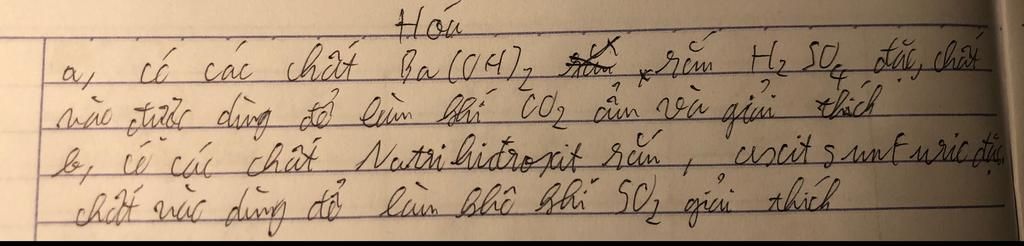 Hóa
a, có các chất Ba(OH)2 rắn H2SO4 đặc, chất
nào được dùng để làm khí CO2 ẩm và giải thích
b, có các chất Natri hiđroxit rắn, axit sunfuric đặc,
chất nào dùng để làm khô khí SO2 giải thích